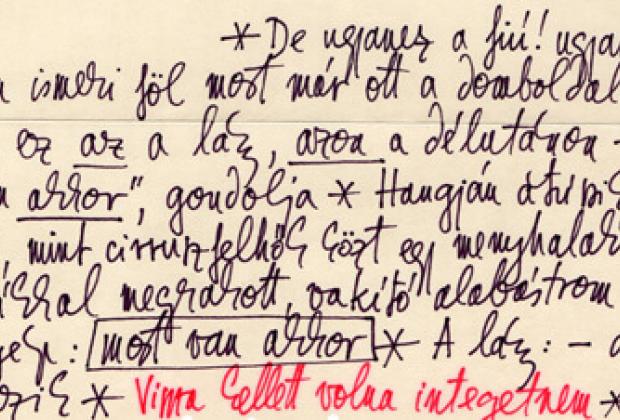 * De ugyanez a fiú! ugya
ismeri föl most már ott a domboldal
ez az a láz, azon a délutánon -
akkor", gondolja * Hangján
, mint cirruszfelhők közt egy
megrakott, vakító alabástrom
: most van akkor * A láz: -
* Vissza kellett volna integetnem *